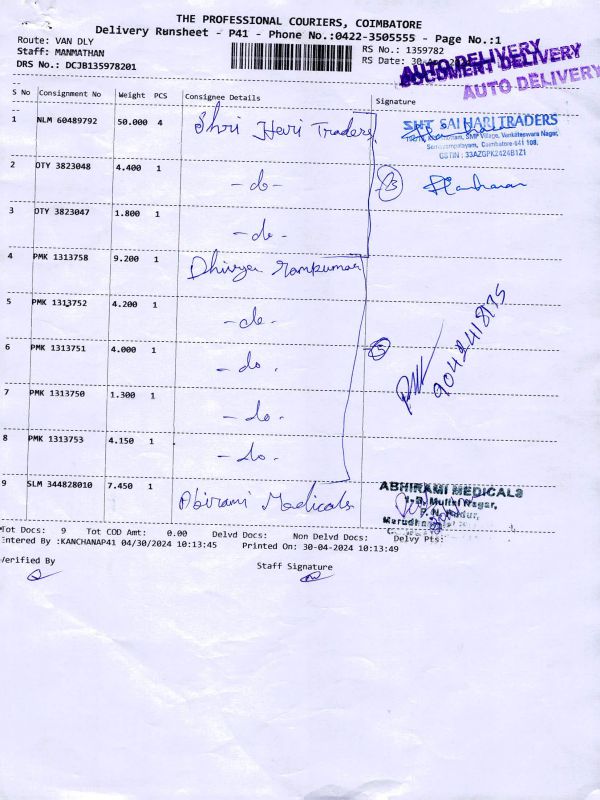 THE PROFESSIONAL COURIERS, COIMBATORE
Delivery Runsheet - P41 - Phone No.:0422-3505555 - Page No.:1
Route: VAN DLY
RS No.: 1359782
Staff: MANMATHAN
RS Date: 30
DRS No.: DCJB135978201
AUTO DELIVERY
DOCUMENT DELIVERY
AUTO DELIVERY
S No Consignment No Weight PCS Consignee Details Signature
1 NLM 60489792 50.000 4 Shri Hari Traders
SAI HARI TRADERS
SMP Village, Venkateswara Nagar,
Coimbatore-641 108.
GSTIN : 33AZGPK2424B1Z1
2 DTY 3823048 4.400 1 -do-
3
3 DTY 3823047 1.800 1 -do-
4 PMK 1313758 9.200 1 Dhivya Ramkumar
5 PMK 1313752 4.200 1 -do-
6 PMK 1313751 4.000 1 -do.
5
7 PMK 1313750 1.300 1 -do-
8 PMK 1313753 4.150 1 -do.
9 SLM 344828010 7.450 1 Abirami Medicals
ABHIRAMI MEDICALS
Nagar,
Tot Docs: 9 Tot COD Amt: 0.00 Delvd Docs: Non Delvd Docs: Delvy Pts:
Entered By :KANCHANAP41 04/30/2024 10:13:45 Printed On: 30-04-2024 10:13:49
Verified By
Staff Signature